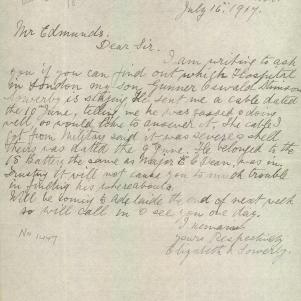 July 16th 1917.
Mr Edmunds.
Dear Sir.
I am writing to ask
you if you can find out which Hospital
in London my son, Gunner Oswald Simson
Sowerby is staying. He sent me a cable dated
the 10th June, telling me he was gassed & doing
well so would like to answer it. The cable I
got from Military said it was severe & shell
theirs was dated the 9 June. He belonged to the
18 Battery the same as Major E C Dean, was in,
trusting it will not cause you to much trouble
in finding his whereabouts.
Will be coming to Adelaide the end of next week
so will call in & see you one day.
I remain
yours Respectfully
Elizabeth Sowerby.
No 1447